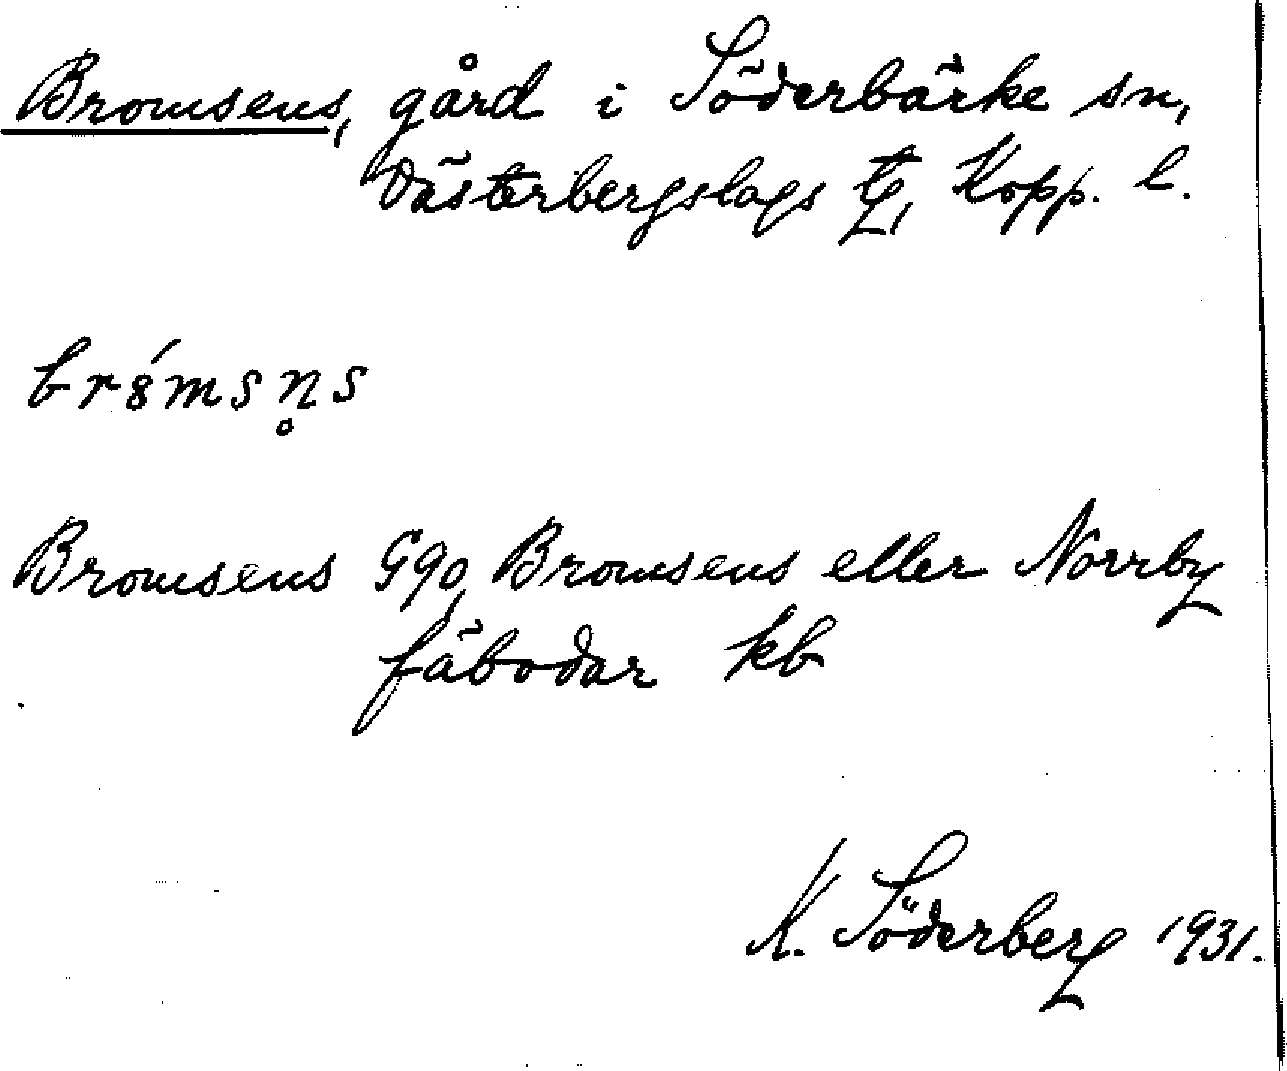 Bromsens, gård i Söderbärke sn,
Västerbergslags tg, Kopp. l.
br8́msn̥s
Bromsens Ggo, Bromsens eller Norrby
fäbodar kb
K. Söderberg 1931.